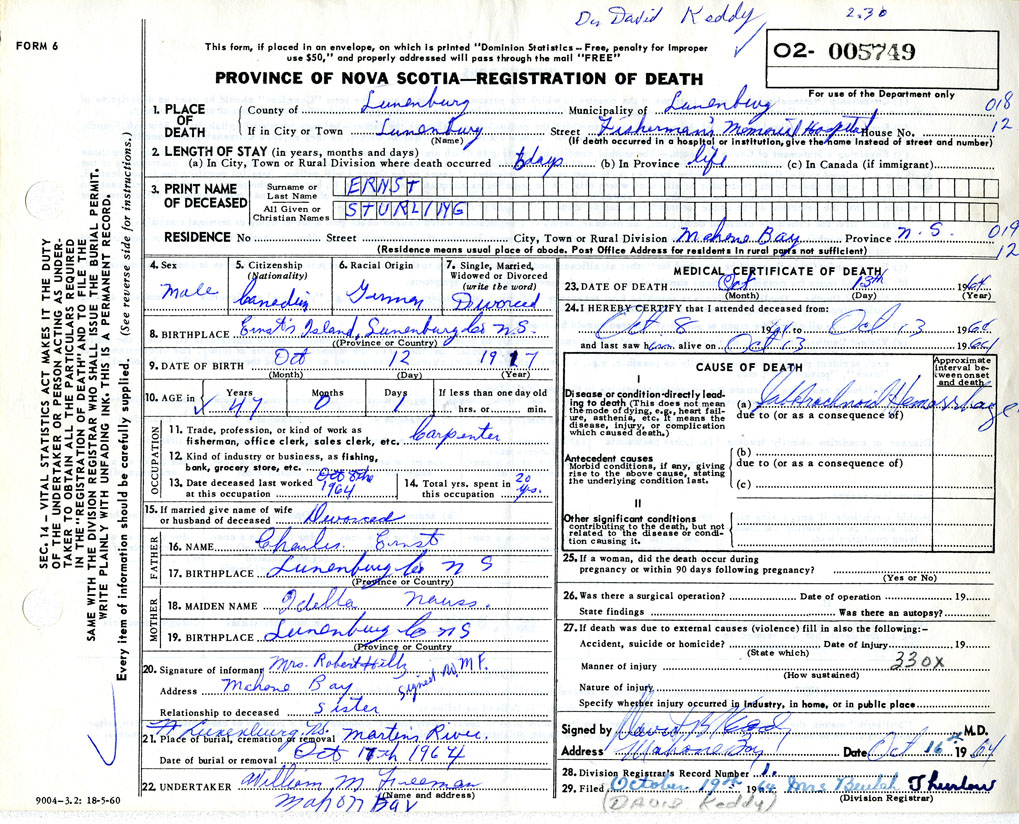 Dr David Keddy 2.30
FORM 6
This form, if placed in an envelope, on which is printed "Dominion Statistics – Free, penalty for improper
use $50," and properly addressed will pass through the mail "FREE"
O2- 005749
PROVINCE OF NOVA SCOTIA—REGISTRATION OF DEATH
For use of the Department only
1. PLACE OF DEATH
County of Lunenburg Municipality of Lunenburg 018
If in City or Town Lunenburg Street Fisherman's Memorial Hospital House No. 12
(Name) (If death occurred in a hospital or institution, give the name instead of street and number)
2. LENGTH OF STAY (in years, months and days)
(a) In City, Town or Rural Division where death occurred days (b) In Province life (c) In Canada (if immigrant)
3. PRINT NAME OF DECEASED
Surname or Last Name ERNST
All Given or Christian Names STURLING
RESIDENCE No Street City, Town or Rural Division Mahone Bay Province N.S. 019
(Residence means usual place of abode. Post Office Address for residents in rural parts not sufficient) 12
4. Sex Male
5. Citizenship (Nationality) Canadin
6. Racial Origin German
7. Single, Married, Widowed or Divorced (write the word) Divorced
8. BIRTHPLACE Ernst's Island, Lunenburg Co N.S.
(Province or Country)
9. DATE OF BIRTH Oct 12 1917
(Month) (Day) (Year)
10. AGE in Years 47 Months 0 Days 1 If less than one day old
hrs. or min.
OCCUPATION
11. Trade, profession, or kind of work as
fisherman, office clerk, sales clerk, etc. Carpenter
12. Kind of industry or business, as fishing,
bank, grocery store, etc.
13. Date deceased last worked at this occupation Oct 8the 1964
14. Total yrs. spent in this occupation 20 yrs.
15. If married give name of wife
or husband of deceased Divorced
FATHER
16. NAME Charles Ernst
17. BIRTHPLACE Lunenburg Co N S
(Province or Country)
MOTHER
18. MAIDEN NAME Idella Nauss.
19. BIRTHPLACE Lunenburg Co N S
(Province or Country)
20. Signature of informant Mrs. Robert Hiltz
Signed W.M.F.
Address Mahone Bay
Relationship to deceased Sister
21. Place of burial, cremation or removal Martins River
Lunenburg
Date of burial or removal Oct 17th 1964
22. UNDERTAKER William M Freeman
(Name and address)
Mahon Bay
9004-3.2: 18-5-60
SEC. 14 – VITAL STATISTICS ACT MAKES IT THE DUTY
OF THE UNDERTAKER OR PERSON ACTING AS UNDER-
TAKER TO OBTAIN ALL THE PARTICULARS REQUIRED
IN THE "REGISTRATION OF DEATH" AND TO FILE THE
SAME WITH THE DIVISION REGISTRAR WHO SHALL ISSUE THE BURIAL PERMIT.
WRITE PLAINLY WITH UNFADING INK. THIS IS A PERMANENT RECORD.
Every item of information should be carefully supplied. (See reverse side for instructions.)
MEDICAL CERTIFICATE OF DEATH
23. DATE OF DEATH Oct 13th 1964
(Month) (Day) (Year)
24. I HEREBY CERTIFY that I attended deceased from:
Oct 8 1964 to Oct 13 1964
and last saw him alive on Oct 13 1964
CAUSE OF DEATH
Approximate interval between onset and death
I
Disease or condition directly lead-
ing to death (This does not mean
the mode of dying, e.g., heart fail-
ure, asthenia, etc. It means the
disease, injury, or complication
which caused death.)
(a) Subarachnoid Hemorrhage
due to (or as a consequence of)
Antecedent causes
Morbid conditions, if any, giving
rise to the above cause, stating
the underlying condition last.
(b)
due to (or as a consequence of)
(c)
II
Other significant conditions
contributing to the death, but not
related to the disease or condi-
tion causing it.
25. If a woman, did the death occur during
pregnancy or within 90 days following pregnancy?
(Yes or No)
26. Was there a surgical operation? Date of operation 19
State findings Was there an autopsy?
27. If death was due to external causes (violence) fill in also the following:–
Accident, suicide or homicide? Date of injury 19
(State which)
Manner of injury 330X
(How sustained)
Nature of injury
Specify whether injury occurred in industry, in home, or in public place
Signed by David B Keddy M.D.
Address Mahone Bay Date Oct 16th 1964
28. Division Registrar's Record Number 1.
29. Filed October 19th 1964 Mrs Beulah Thurlow
(DAVID Keddy) (Division Registrar)